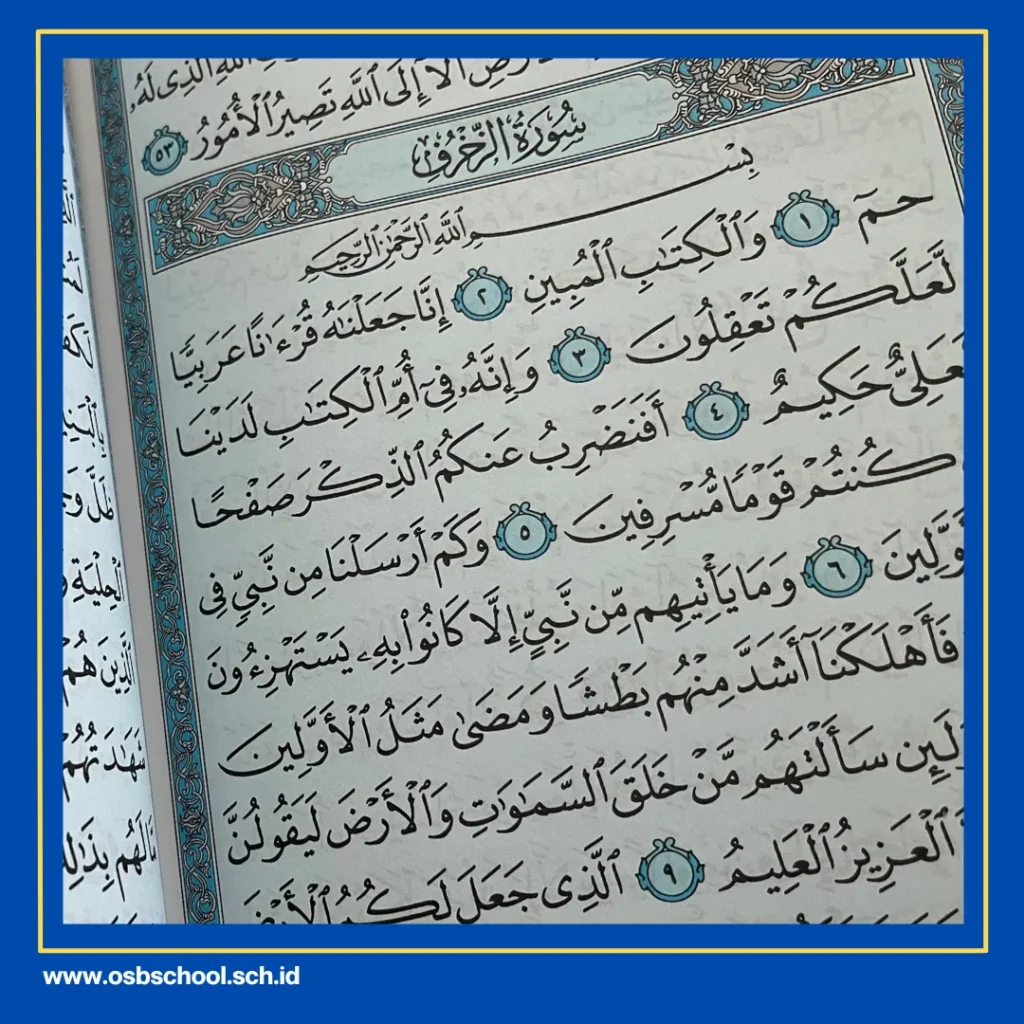 ٱللَّهِ ٱلَّذِى لَهُۥ
أَلَآ إِلَى ٱللَّهِ تَصِيرُ ٱلْأُمُورُ ٥٣
سُورَةُ ٱلزُّخْرُفِ
بِسْمِ ٱللَّهِ ٱلرَّحْمَٰنِ ٱلرَّحِيمِ
حمٓ ١ وَٱلْكِتَٰبِ ٱلْمُبِينِ ٢ إِنَّا جَعَلْنَٰهُ قُرْءَٰنًا عَرَبِيًّا
لَّعَلَّكُمْ تَعْقِلُونَ ٣ وَإِنَّهُۥ فِىٓ أُمِّ ٱلْكِتَٰبِ لَدَيْنَا
لَعَلِىٌّ حَكِيمٌ ٤ أَفَنَضْرِبُ عَنكُمُ ٱلذِّكْرَ صَفْحًا
كُنتُمْ قَوْمًا مُّسْرِفِينَ ٥ وَكَمْ أَرْسَلْنَا مِن نَّبِىٍّ فِى
ٱلْأَوَّلِينَ ٦ وَمَا يَأْتِيهِم مِّن نَّبِىٍّ إِلَّا كَانُوا۟ بِهِۦ يَسْتَهْزِءُونَ
فَأَهْلَكْنَآ أَشَدَّ مِنْهُم بَطْشًا وَمَضَىٰ مَثَلُ ٱلْأَوَّلِينَ
وَلَئِن سَأَلْتَهُم مَّنْ خَلَقَ ٱلسَّمَٰوَٰتِ وَٱلْأَرْضَ لَيَقُولُنَّ
ٱلْعَزِيزُ ٱلْعَلِيمُ ٩ ٱلَّذِى جَعَلَ لَكُمُ ٱلْأَرْضَ
ظَلَّ
ٱلْحِلْيَةِ
ٱلَّذِينَ هُمْ
شَهَٰدَتُهُمْ
مَّا لَهُم بِذَٰلِكَ
www.osbschool.sch.id